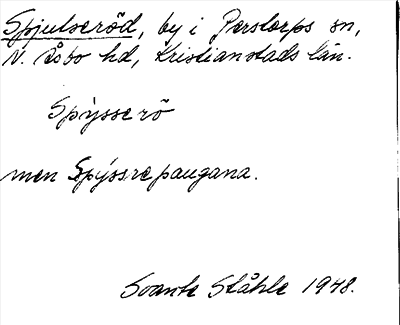 Spjutseröd, by i Perstorps sn,
N. Åsbo hd, Kristianstads län.
Spýsserö
men Spýssre paugana.
Svante Ståhle 1948.